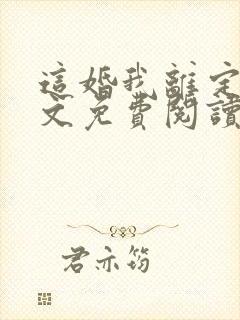 這婚我離定
文免費閱讀
君亦筠